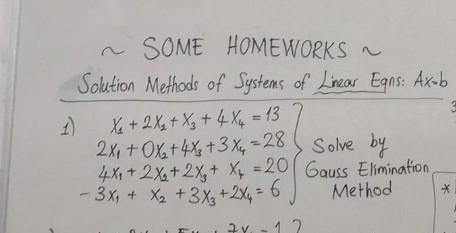 ~ SOME HOMEWORKS ~
Solution Methods of Systems of Linear Eqns: Ax=b
1) X₁ + 2X₂ + X₃ + 4X₄ = 13
2X₁ + 0X₂ + 4X₃ + 3X₄ = 28
4X₁ + 2X₂ + 2X₃ + X₄ = 20
- 3X₁ + X₂ + 3X₃ + 2X₄ = 6
Solve by
Gauss Elimination
Method
3
*